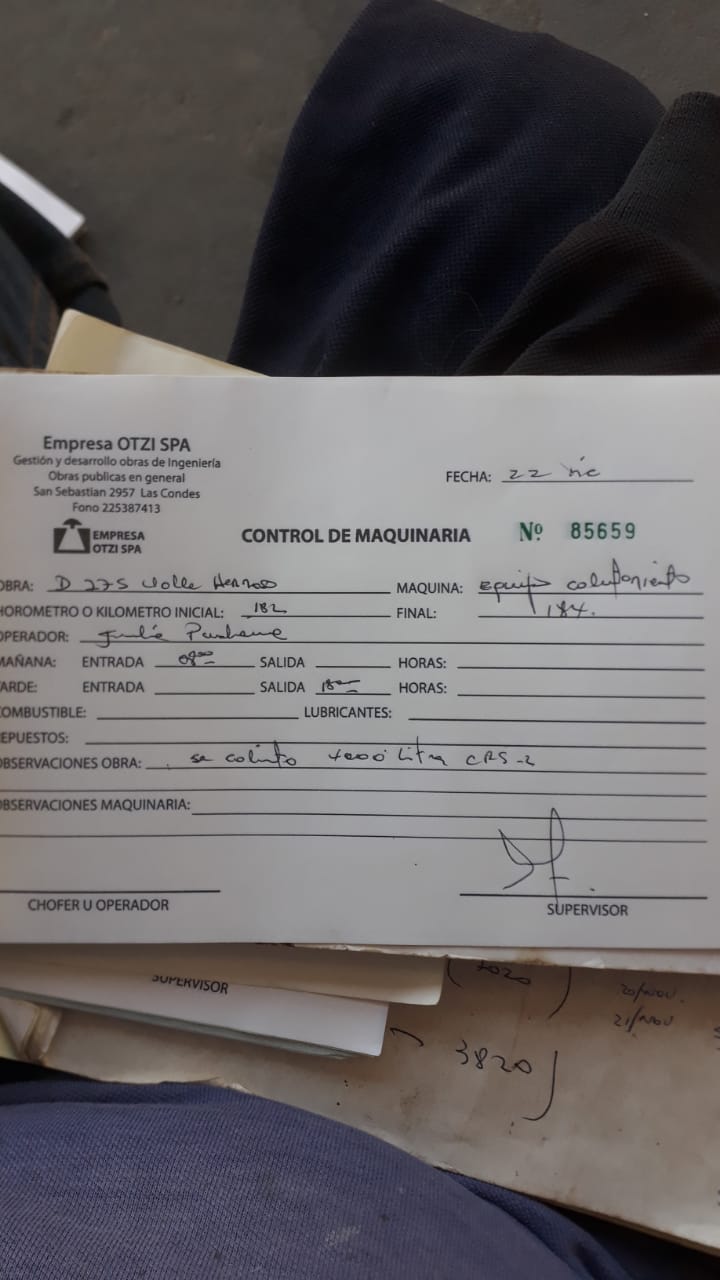 Empresa OTZI SPA
Gestión y desarrollo obras de Ingeniería
Obras publicas en general
San Sebastian 2957 Las Condes
Fono 225387413
EMPRESA
OTZI SPA
FECHA: 22
CONTROL DE MAQUINARIA Nº 85659
OBRA: D 275 MAQUINA: equipo
HOROMETRO O KILOMETRO INICIAL: 182 FINAL: 184.
OPERADOR:
MAÑANA: ENTRADA 08⁰⁰ SALIDA HORAS:
TARDE: ENTRADA SALIDA 18⁰⁰ HORAS:
COMBUSTIBLE: LUBRICANTES:
REPUESTOS:
OBSERVACIONES OBRA: se 4000 Litros CRS-2
OBSERVACIONES MAQUINARIA:
CHOFER U OPERADOR
SUPERVISOR
SUPERVISOR
20/NOV.
21/NOV
3820